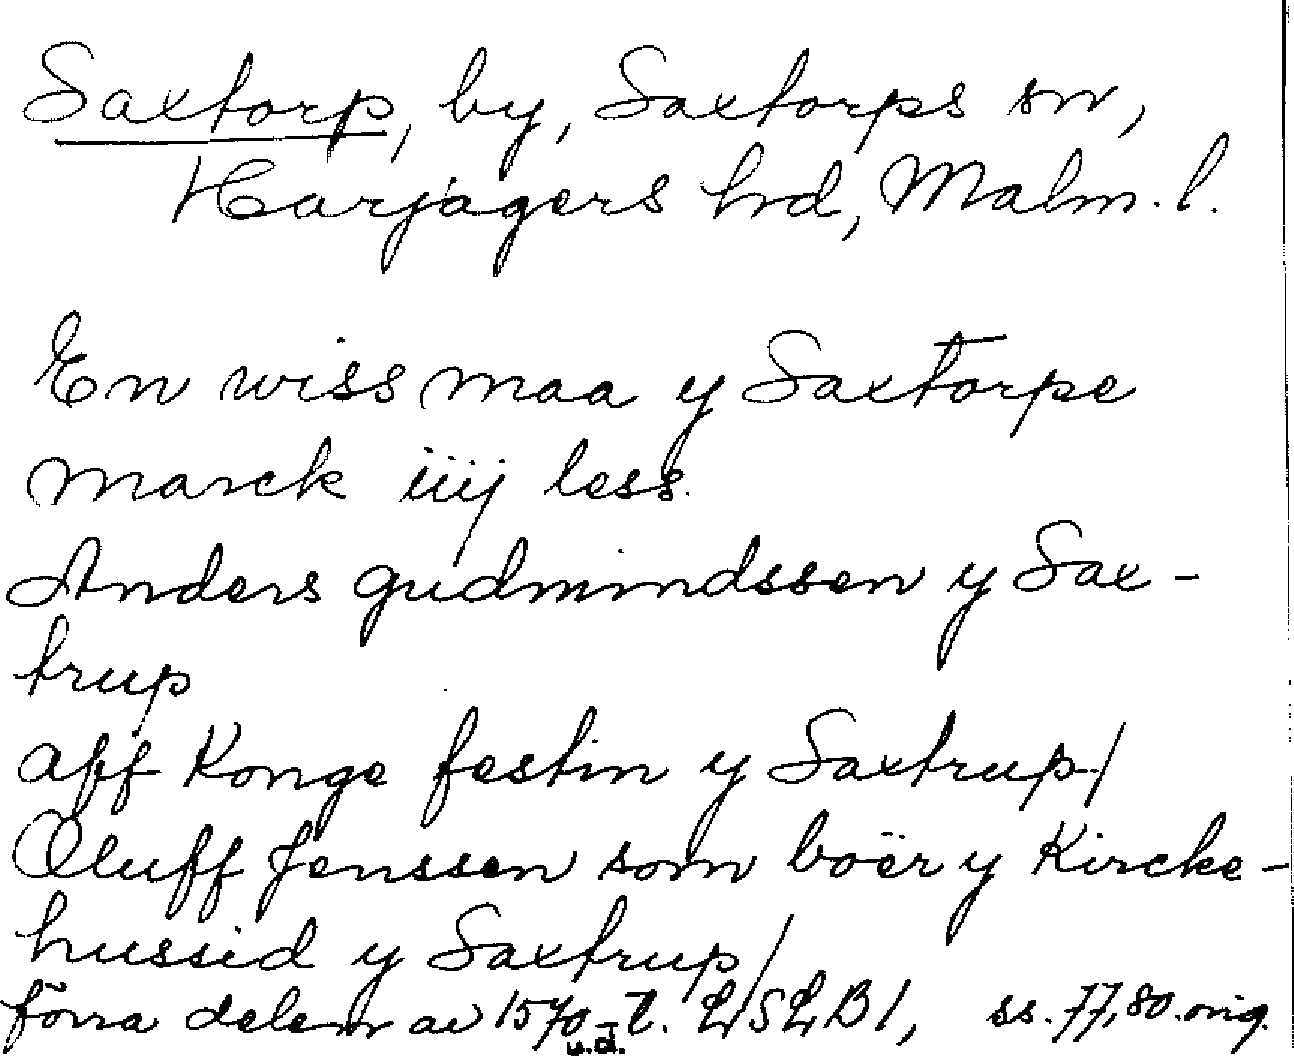 Saxtorp, by, Saxtorps sn,
Harjagers hd, Malm. l.
En wiss maa y Saxtorpe
marck iiij less.
Anders gudmindssen y Sax-
trup
aff Konge festin y Saxtrup/
Oluff Jenssen som boër y Kircke-
hussid y Saxtrup/
förra delen av 1570-t. LSLB 1, ss. 77, 80. orig.
u.d.